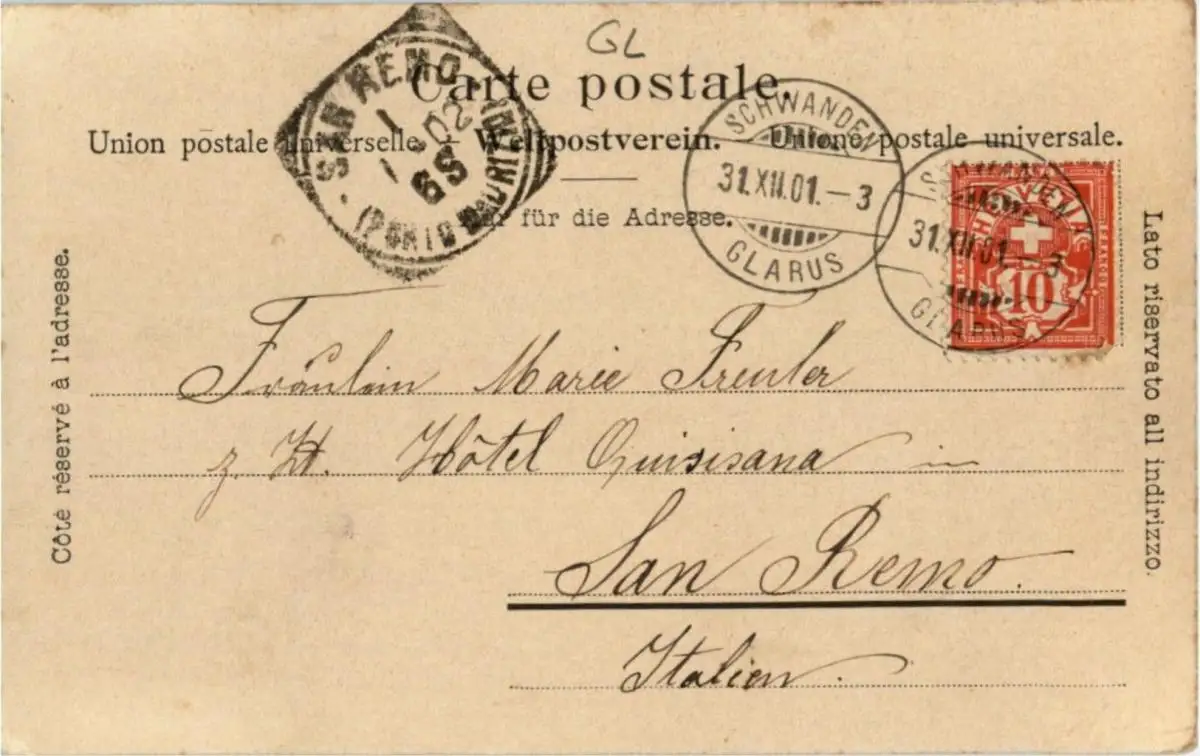 GL
Carte postale.
Union postale universelle. – Weltpostverein. – Unione postale universale.
Nur für die Adresse.
SAN REMO
1 1 02
6S
(PORTO MAURIZIO)
SCHWANDEN
31.XII.01.–3
GLARUS
SCHWANDEN
31.XII.01.–3
GLARUS
HELVETIA
FRANCO
10
Côté réservé à l'adresse.
Lato riservato all indirizzo.
Fräulein Marie Freuler
z. Zt. Hôtel Quisisana in
San Remo.
Italien.